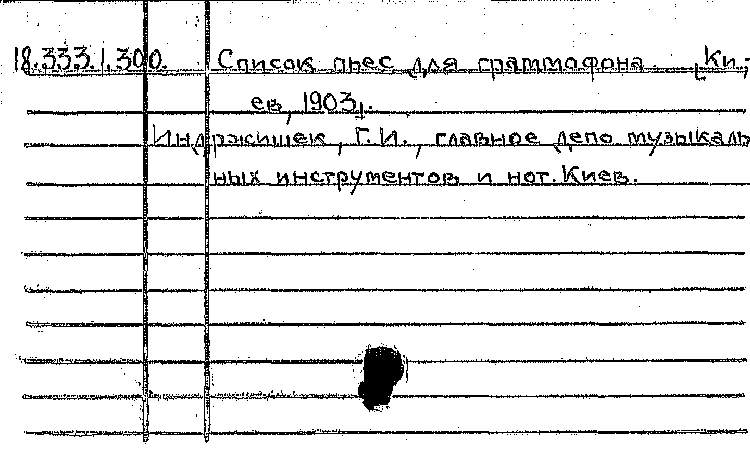 18.333.1.300. Список пьес для граммофона. [Ки-
ев, 1903].
Индржишек, Г.И., главное депо музыкаль
ных инструментов и нот. Киев.